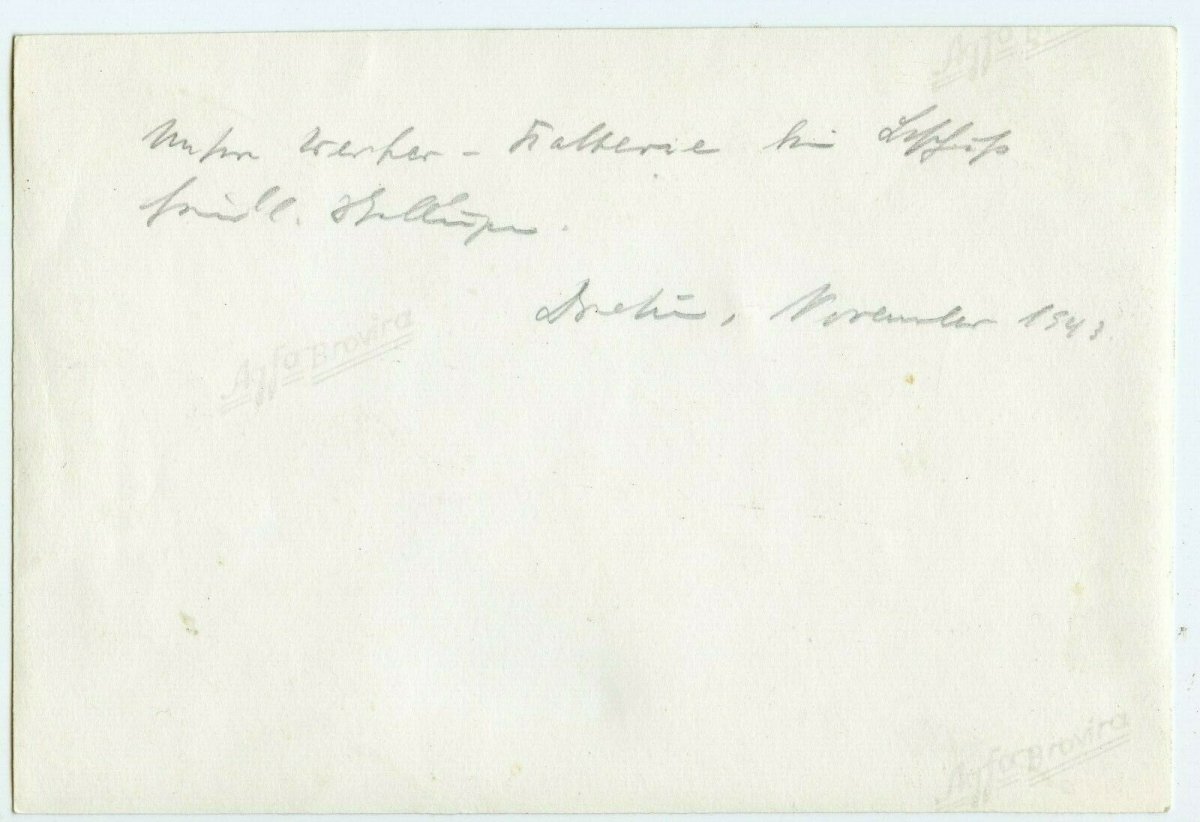 Agfa Brovira
Werfer - Batterie
feindl. Stellungen.
Dretun, November 1943.
Agfa Brovira
Agfa Brovira